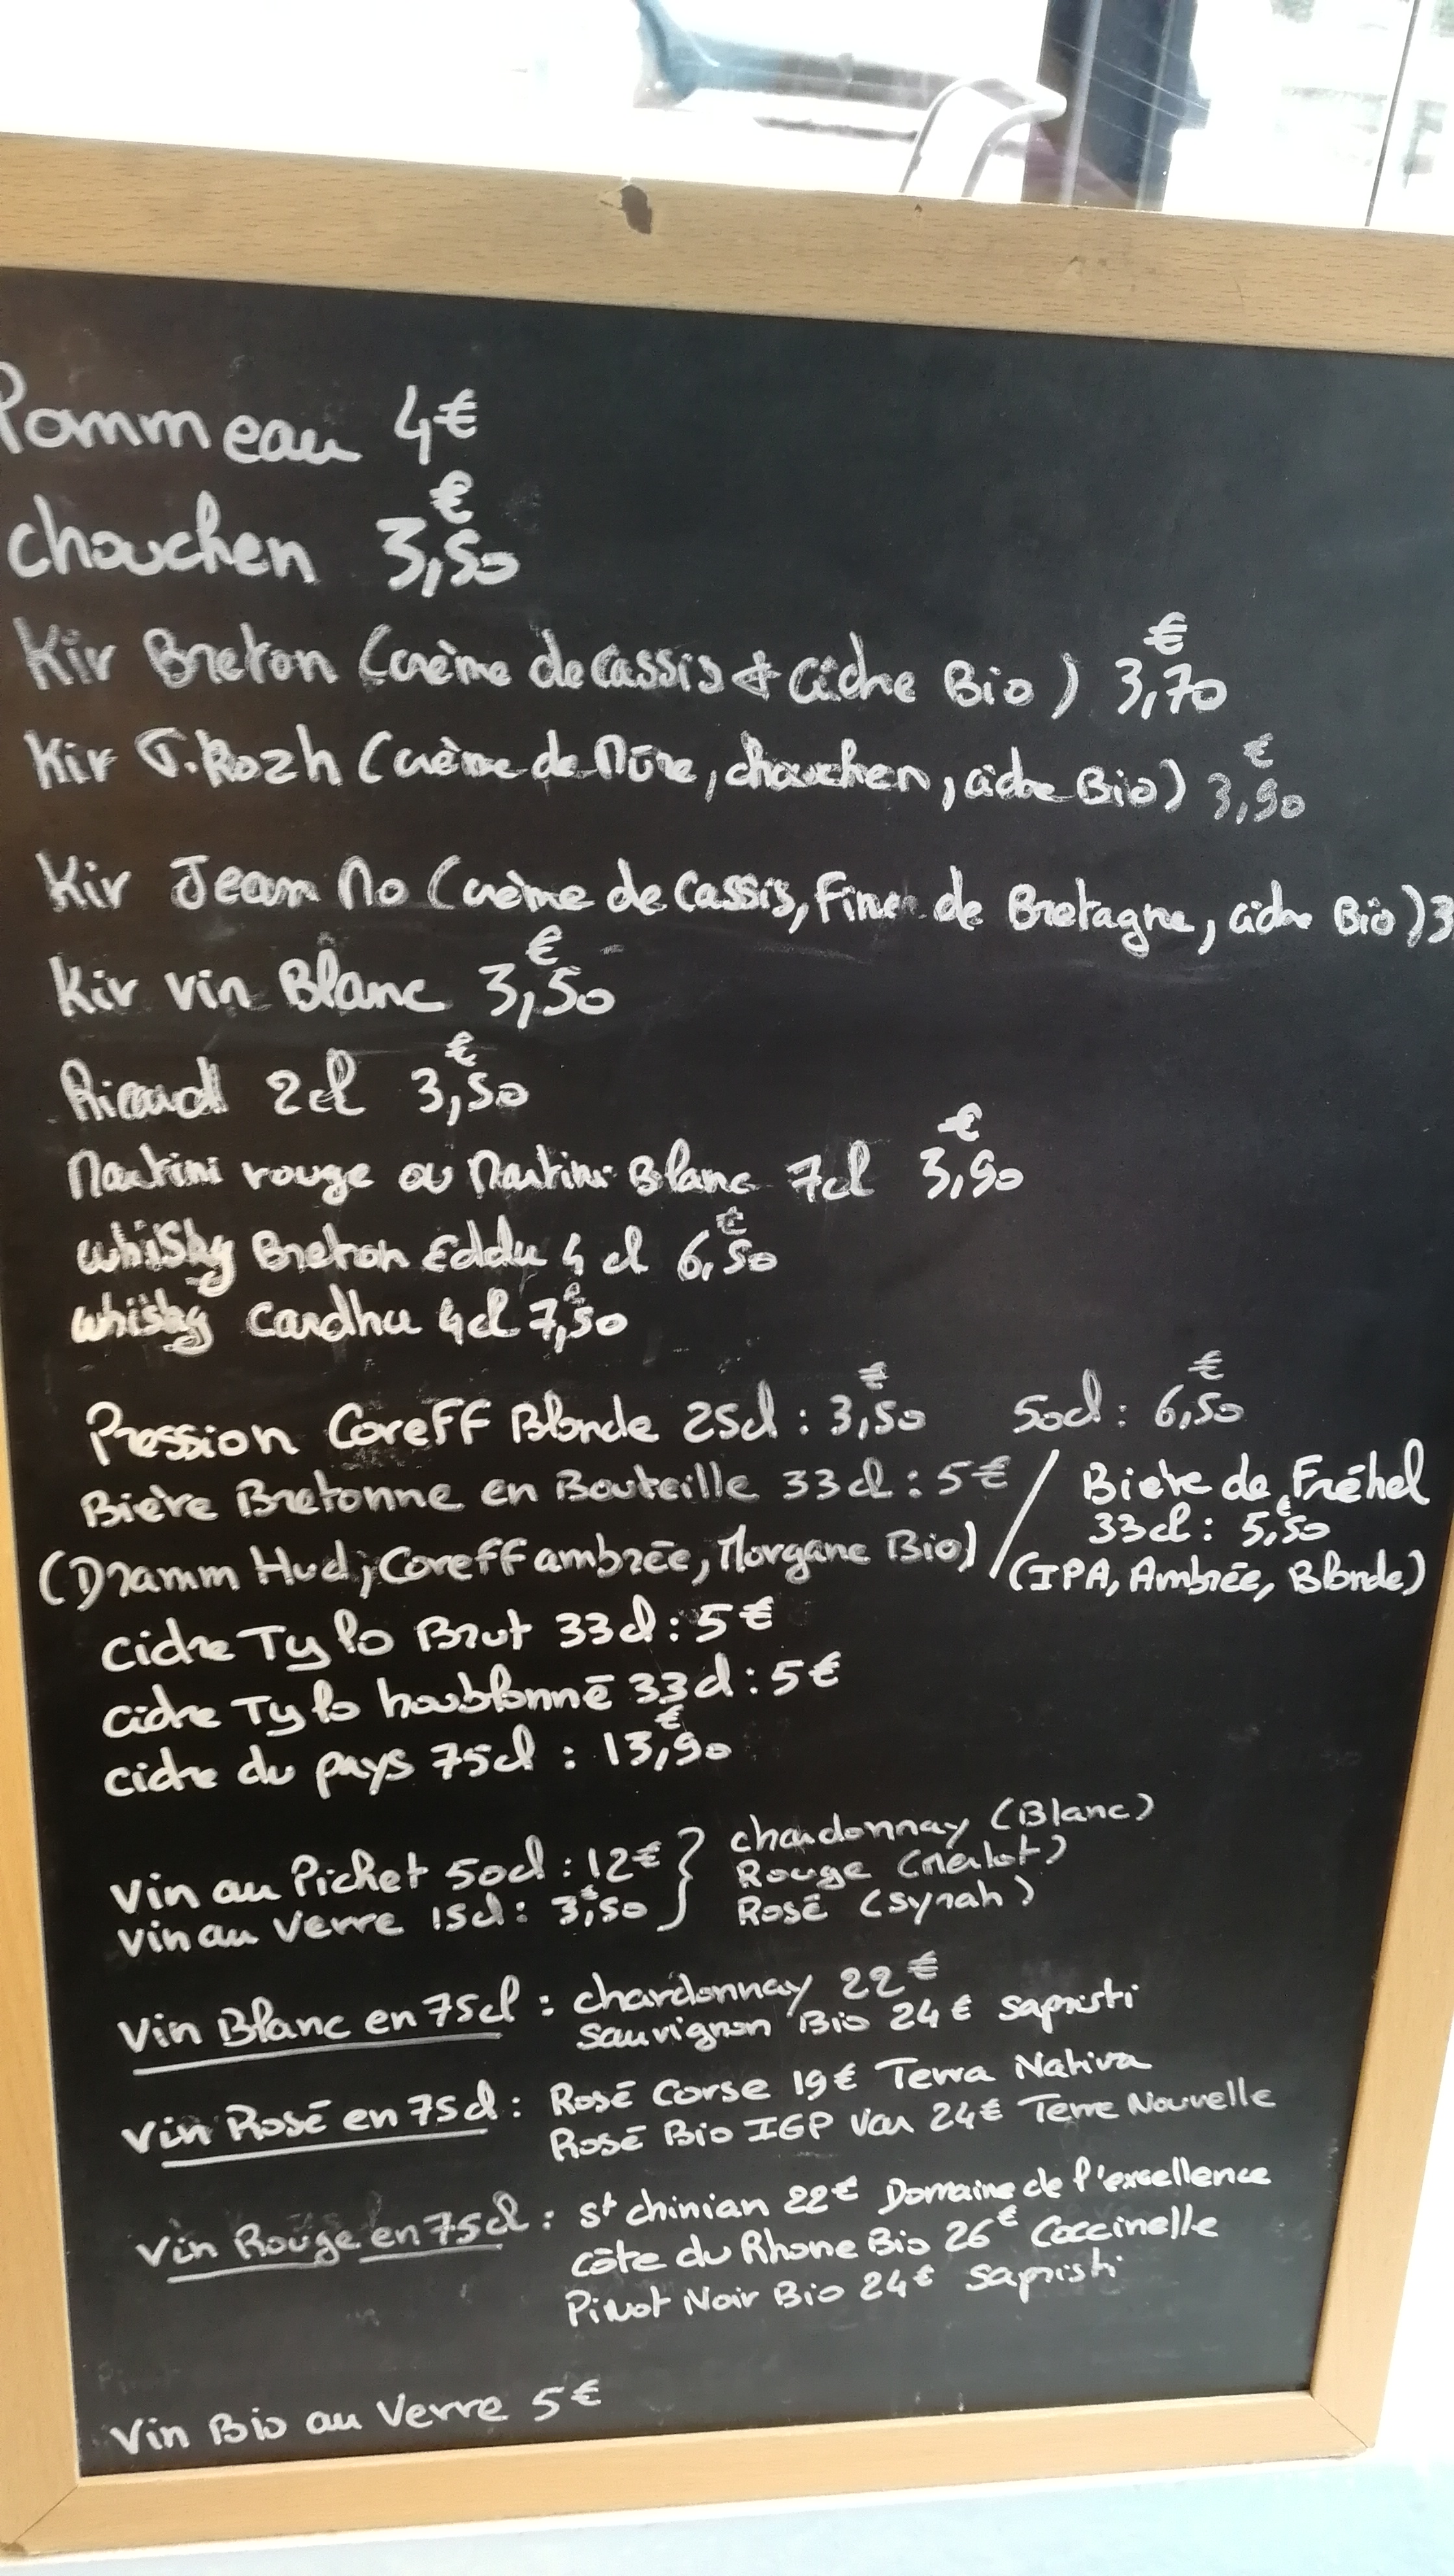 Pommeau 4€
chouchen 3,50€
Kir Breton (crème de Cassis & cidre Bio) 3,70€
Kir T.Kozh (crème de Mûre, chouchen, cidre Bio) 3,90€
Kir Jean No (crème de Cassis, Fine de Bretagne, cidre Bio) 3
Kir vin Blanc 3,50€
Ricard 2cl 3,50€
Martini rouge ou Martini Blanc 7cl 3,90€
whisky Breton Eddu 4 cl 6,50€
whisky Cardhu 4cl 7,50€
Pression Coreff Blonde 25cl : 3,50€ 50cl : 6,50€
Bière Bretonne en Bouteille 33cl : 5€ / Bière de Fréhel
33cl : 5,50€
(Dramm Hud, Coreff ambrée, Morgane Bio) / (IPA, Ambrée, Blonde)
cidre Ty lo Brut 33cl : 5€
cidre Ty lo houblonné 33cl : 5€
cidre du pays 75cl : 13,90€
Vin au Pichet 50cl : 12€ } chardonnay (Blanc)
Rouge (Merlot)
Vin au Verre 15cl : 3,50€ Rosé (syrah)
Vin Blanc en 75cl : chardonnay 22€
Sauvignon Bio 24€ sapristi
Vin Rosé en 75cl : Rosé Corse 19€ Terra Nativa
Rosé Bio IGP Var 24€ Terre Nouvelle
Vin Rouge en 75cl : St chinian 22€ Domaine de l'excellence
côte du Rhone Bio 26€ Coccinelle
Pinot Noir Bio 24€ sapristi
Vin Bio au Verre 5€